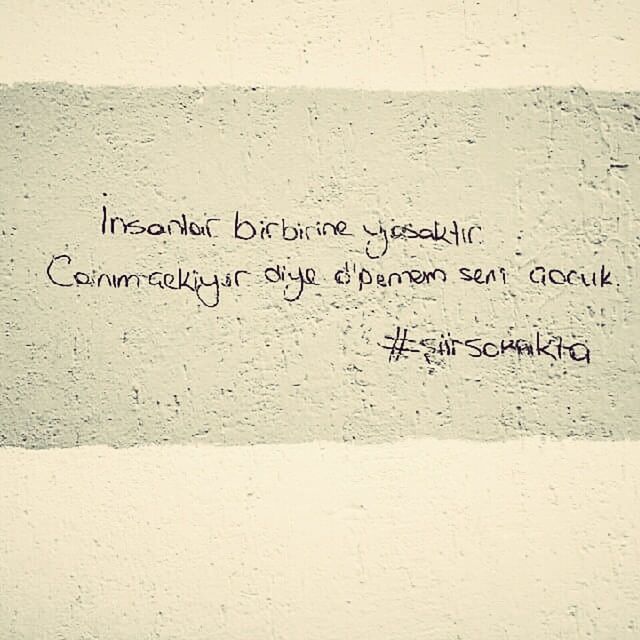 İnsanlar birbirine yasaktır.
Canım çekiyor diye öpemem seni çocuk.
#şiirsokakta